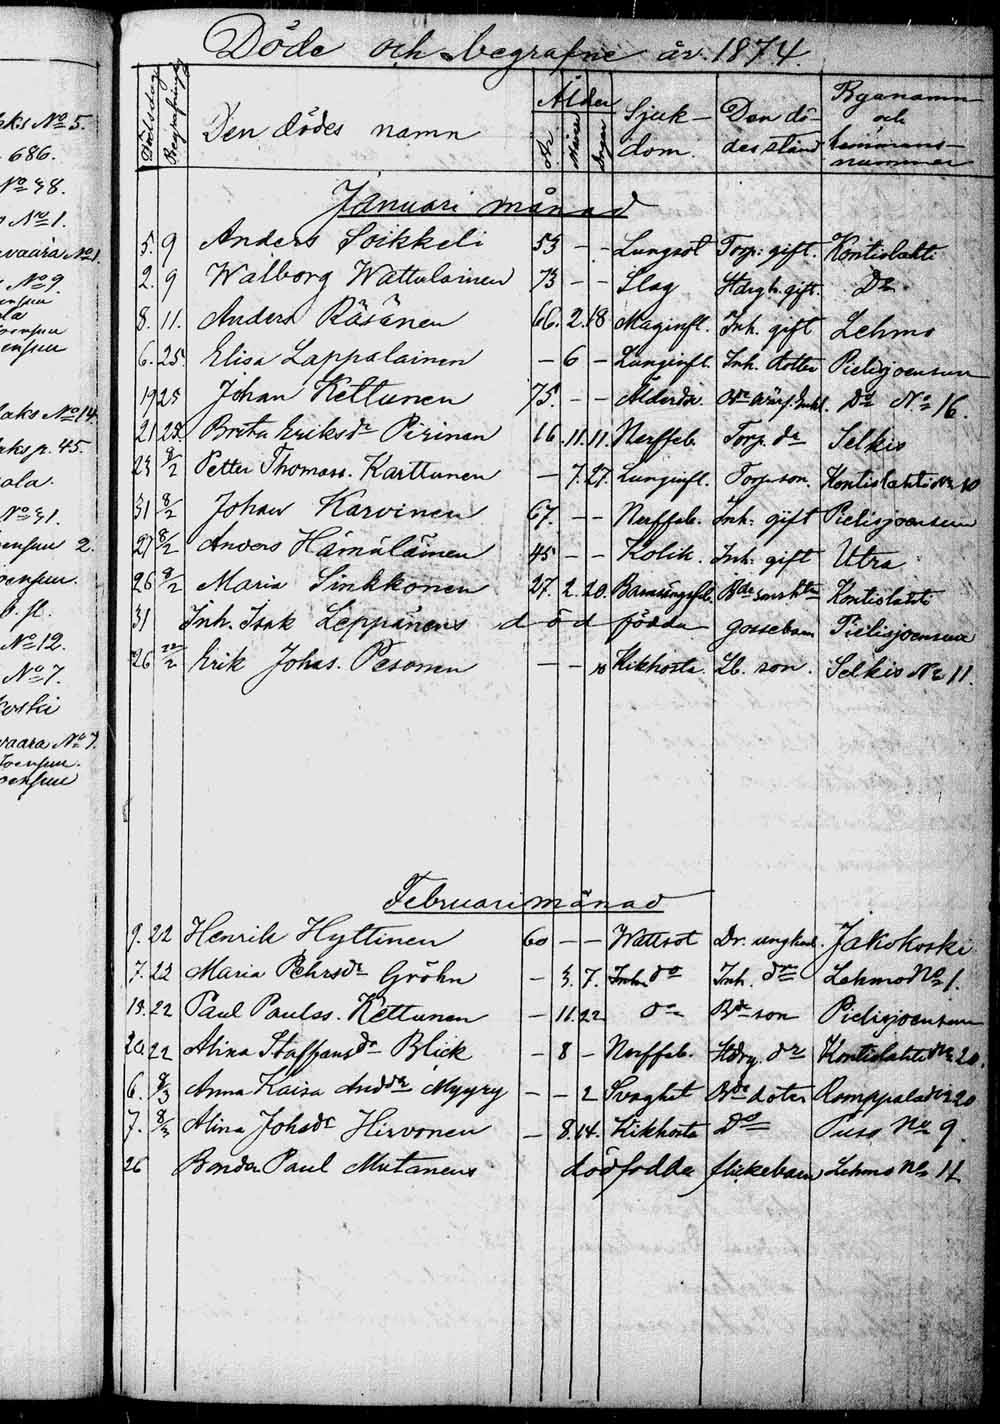 Döde och begrafne år 1874.
Dödsdag Begrafningsdag Den dödes namn Ålder År Månad Dagar Sjukdom. Den dödes stånd Byanamn och hemmansnummer
Januari månad
5. 9 Anders Soikkeli 53 – – Lungsot Torp. gift. Kontiolahti
2. 9 Walborg Wattulainen 73 – – Slag gift. Do
8. 11. Anders Räsänen 66. 2. 18 Maginfl. Inh. gift Lehmo
6. 25. Elisa Lappalainen – 6 – Lunginfl. Inh. dotter Pielisjoensuu
19 25 Johan Kettunen 75. – – Ålderdom Do No 16.
21 25. Brita Eriksdr Piirinen 16. 11. 11. Nerffeb. Torp. dr Selkie
23 8/2 Petter Thomass. Karttunen – 7. 27. Lunginfl. Torp. son. Kontiolahti No 10
31 8/2 Johan Karvinen 67. – – Nerffeb. Inh. gift Pielisjoensuu
27 8/2 Anders Hämäläinen 45 – – Kolik. Inh. gift Utra
26 8/2 Maria Sinkkonen 27. 2. 20. Barnsängsfeb. Kontiolahti
31 Inh. Isak Leppänens död födda gossebarn Pielisjoensuu
26 22/2 Erik Johas. Pesonen – – Kikhosta Lb. son. Selkie No 11.
Februari månad
9. 22 Henrik Hyttinen 60 – – Wattsot Dr. ungkarl. Jakokoski
7. 22 Maria Pehrsdr Gröhn – 3. 7. do Inh. dr Lehmo No 1.
18. 22 Paul Paulss. Kettunen – 11. 22 do Bde son Pielisjoensuu
20 22 Alina Staffansdr Blick – 8 – Nerffeb. dr Kontiolahti No 20.
6. 8/3 Anna Kaisa Anddr Myyry – – 2 Svaghet Bde doter Romppala No 20
7. 8/3 Alina Johsdr Hirvonen – 8. 14. Kikhosta Do Puso No 9.
26 Bonden Paul Mutanens dödfödda flickebarn Lehmo No 11
aks No 5.
686.
No 38.
No 1.
vaara No 1.
No 9.
ensuu
ensuu
ensuu
laks No 14.
p. 45.
ala.
No 31.
ensuu 2.
ensuu.
No 12.
No 7.
koski
vaara No 7.
Joensuu.
oensuu